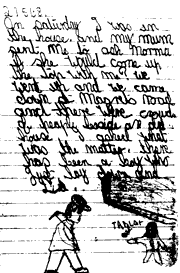 21.5.68.
On saturday I was in
the house and my mum
sent me to ask Norma
if she would come up
the top with me we
went up and we came
down at Magrets Road
and there were crowds
of people beside a old
house I asked what
was the matter. there
has been a boy who
Just lay down and
died.